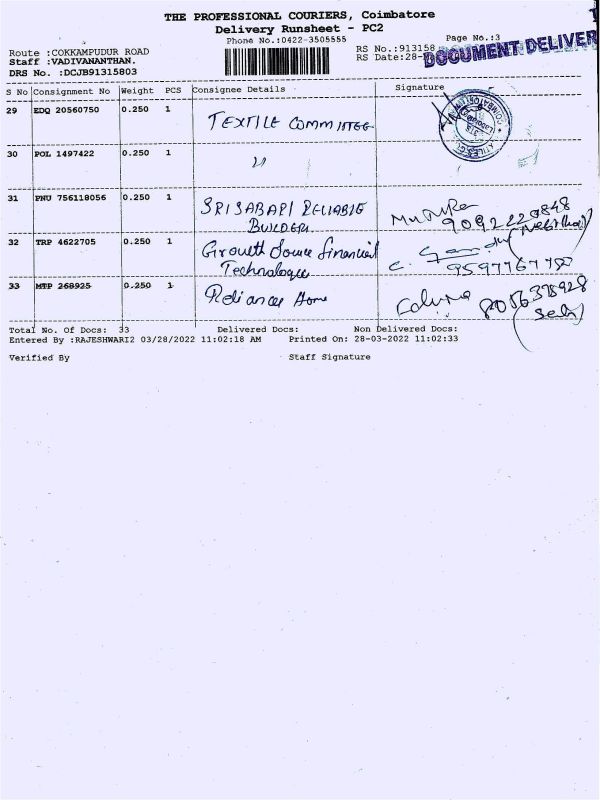 THE PROFESSIONAL COURIERS, Coimbatore
Delivery Runsheet - PC2
Phone No.:0422-3505555
Page No.:3
Route :COKKAMPUDUR ROAD
RS No.:913158
DOCUMENT DELIVER
Staff :VADIVANANTHAN.
RS Date:28-
DRS No. :DCJB91315803
S No Consignment No Weight PCS Consignee Details Signature
29 EDQ 20560750 0.250 1 TEXTILE COMMITTEE
30 POL 1497422 0.250 1
31 PNU 756118056 0.250 1 SRI SABARI RELIABLE
BUILDERS
32 TRP 4622705 0.250 1 Growth Source Financial
Technologies
33 MTP 268925 0.250 1 Reliance Home
Total No. Of Docs: 33 Delivered Docs: Non Delivered Docs:
Entered By :RAJESHWARI2 03/28/2022 11:02:18 AM Printed On: 28-03-2022 11:02:33
Verified By Staff Signature